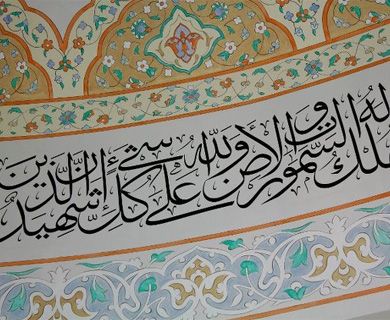 له ملك السموات والارض والله على كل شيء شهيد إن الذين